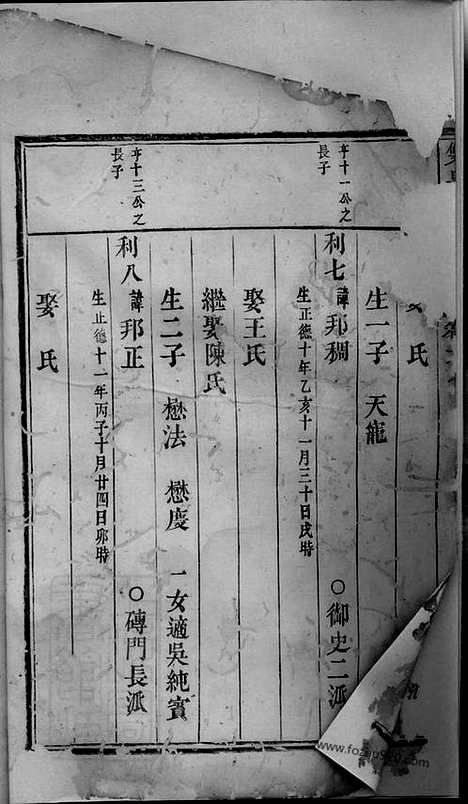 氏
生一子 天龍
亨十一公之
長子
利七 諱邦稠 ○御史二派
生正德十年乙亥十一月三十日戌時
娶王氏
繼娶陳氏
生二子 懋法 懋慶 一女適吳純實
亨十三公之
長子
利八 諱邦正 ○磚門長派
生正德十一年丙子十月廿四日卯時
娶 氏